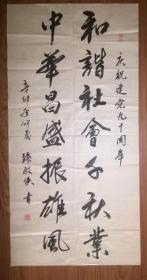 庆祝建党九十周年
和諧社會千秋業
中華昌盛振雄風
辛卯年仲夏 書